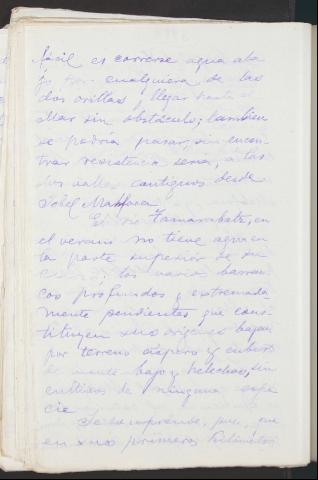 fácil es correrse agua aba
jo por cualquiera de las
dos orillas y llegar hasta el
Mar sin obstáculo; tambien
se podria pasar, sin encon
trar resistencia seria, a los
dos valles contiguos desde
El rio Tamarrabate, en
el verano no tiene agua en
la parte superior de su
los varios barran
cos profundos y extremada
mente pendientes que cons-
tituyen sus origenes bajan
por terreno áspero y cubier
to de monte bajo y helechos, sin
cultivos de ninguna espe
cie
Se comprende, pues, que
en sus primeros kilometros